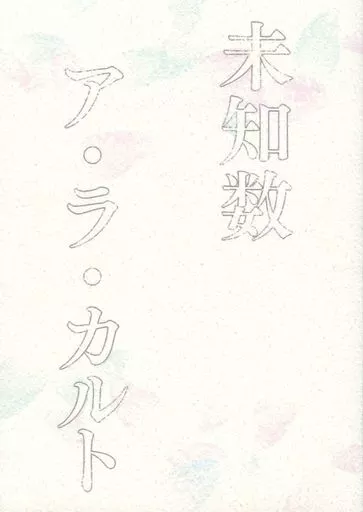 未知数
ア・ラ・カルト